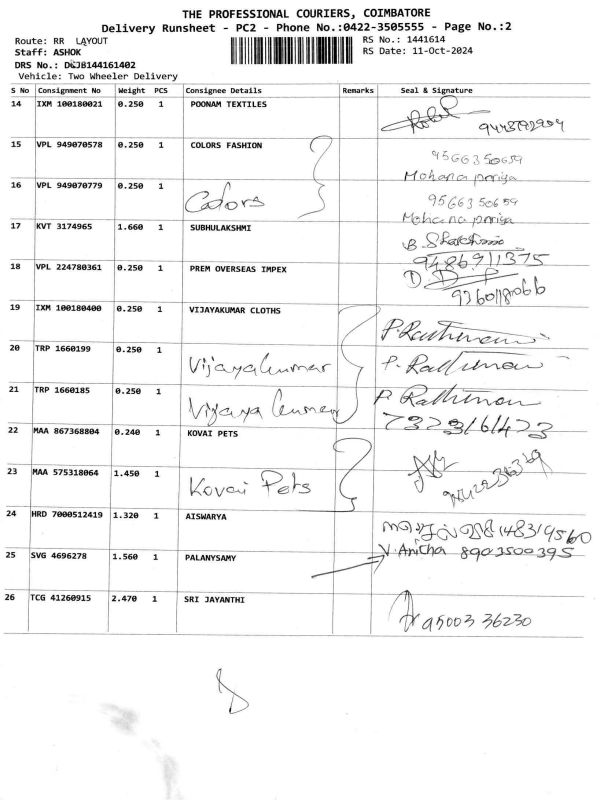 THE PROFESSIONAL COURIERS, COIMBATORE
Delivery Runsheet - PC2 - Phone No.:0422-3505555 - Page No.:2
Route: RR LAYOUT
RS No.: 1441614
Staff: ASHOK
RS Date: 11-Oct-2024
DRS No.: DCJB144161402
Vehicle: Two Wheeler Delivery
S No Consignment No Weight PCS Consignee Details Remarks Seal & Signature
14 IXM 100180021 0.250 1 POONAM TEXTILES
15 VPL 949070578 0.250 1 COLORS FASHION 9566350659
Mohana priya
16 VPL 949070779 0.250 1 Colors 9566350659
Mohana priya
17 KVT 3174965 1.660 1 SUBHULAKSHMI
9486711375
18 VPL 224780361 0.250 1 PREM OVERSEAS IMPEX
19 IXM 100180400 0.250 1 VIJAYAKUMAR CLOTHS
20 TRP 1660199 0.250 1 Vijayakumar
21 TRP 1660185 0.250 1 Vijaya kumar
7373161473
22 MAA 867368804 0.240 1 KOVAI PETS
23 MAA 575318064 1.450 1 Kovai Pets
24 HRD 7000512419 1.320 1 AISWARYA
25 SVG 4696278 1.560 1 PALANYSAMY V. Anitha 8903500395
26 TCG 41260915 2.470 1 SRI JAYANTHI 95003 36230